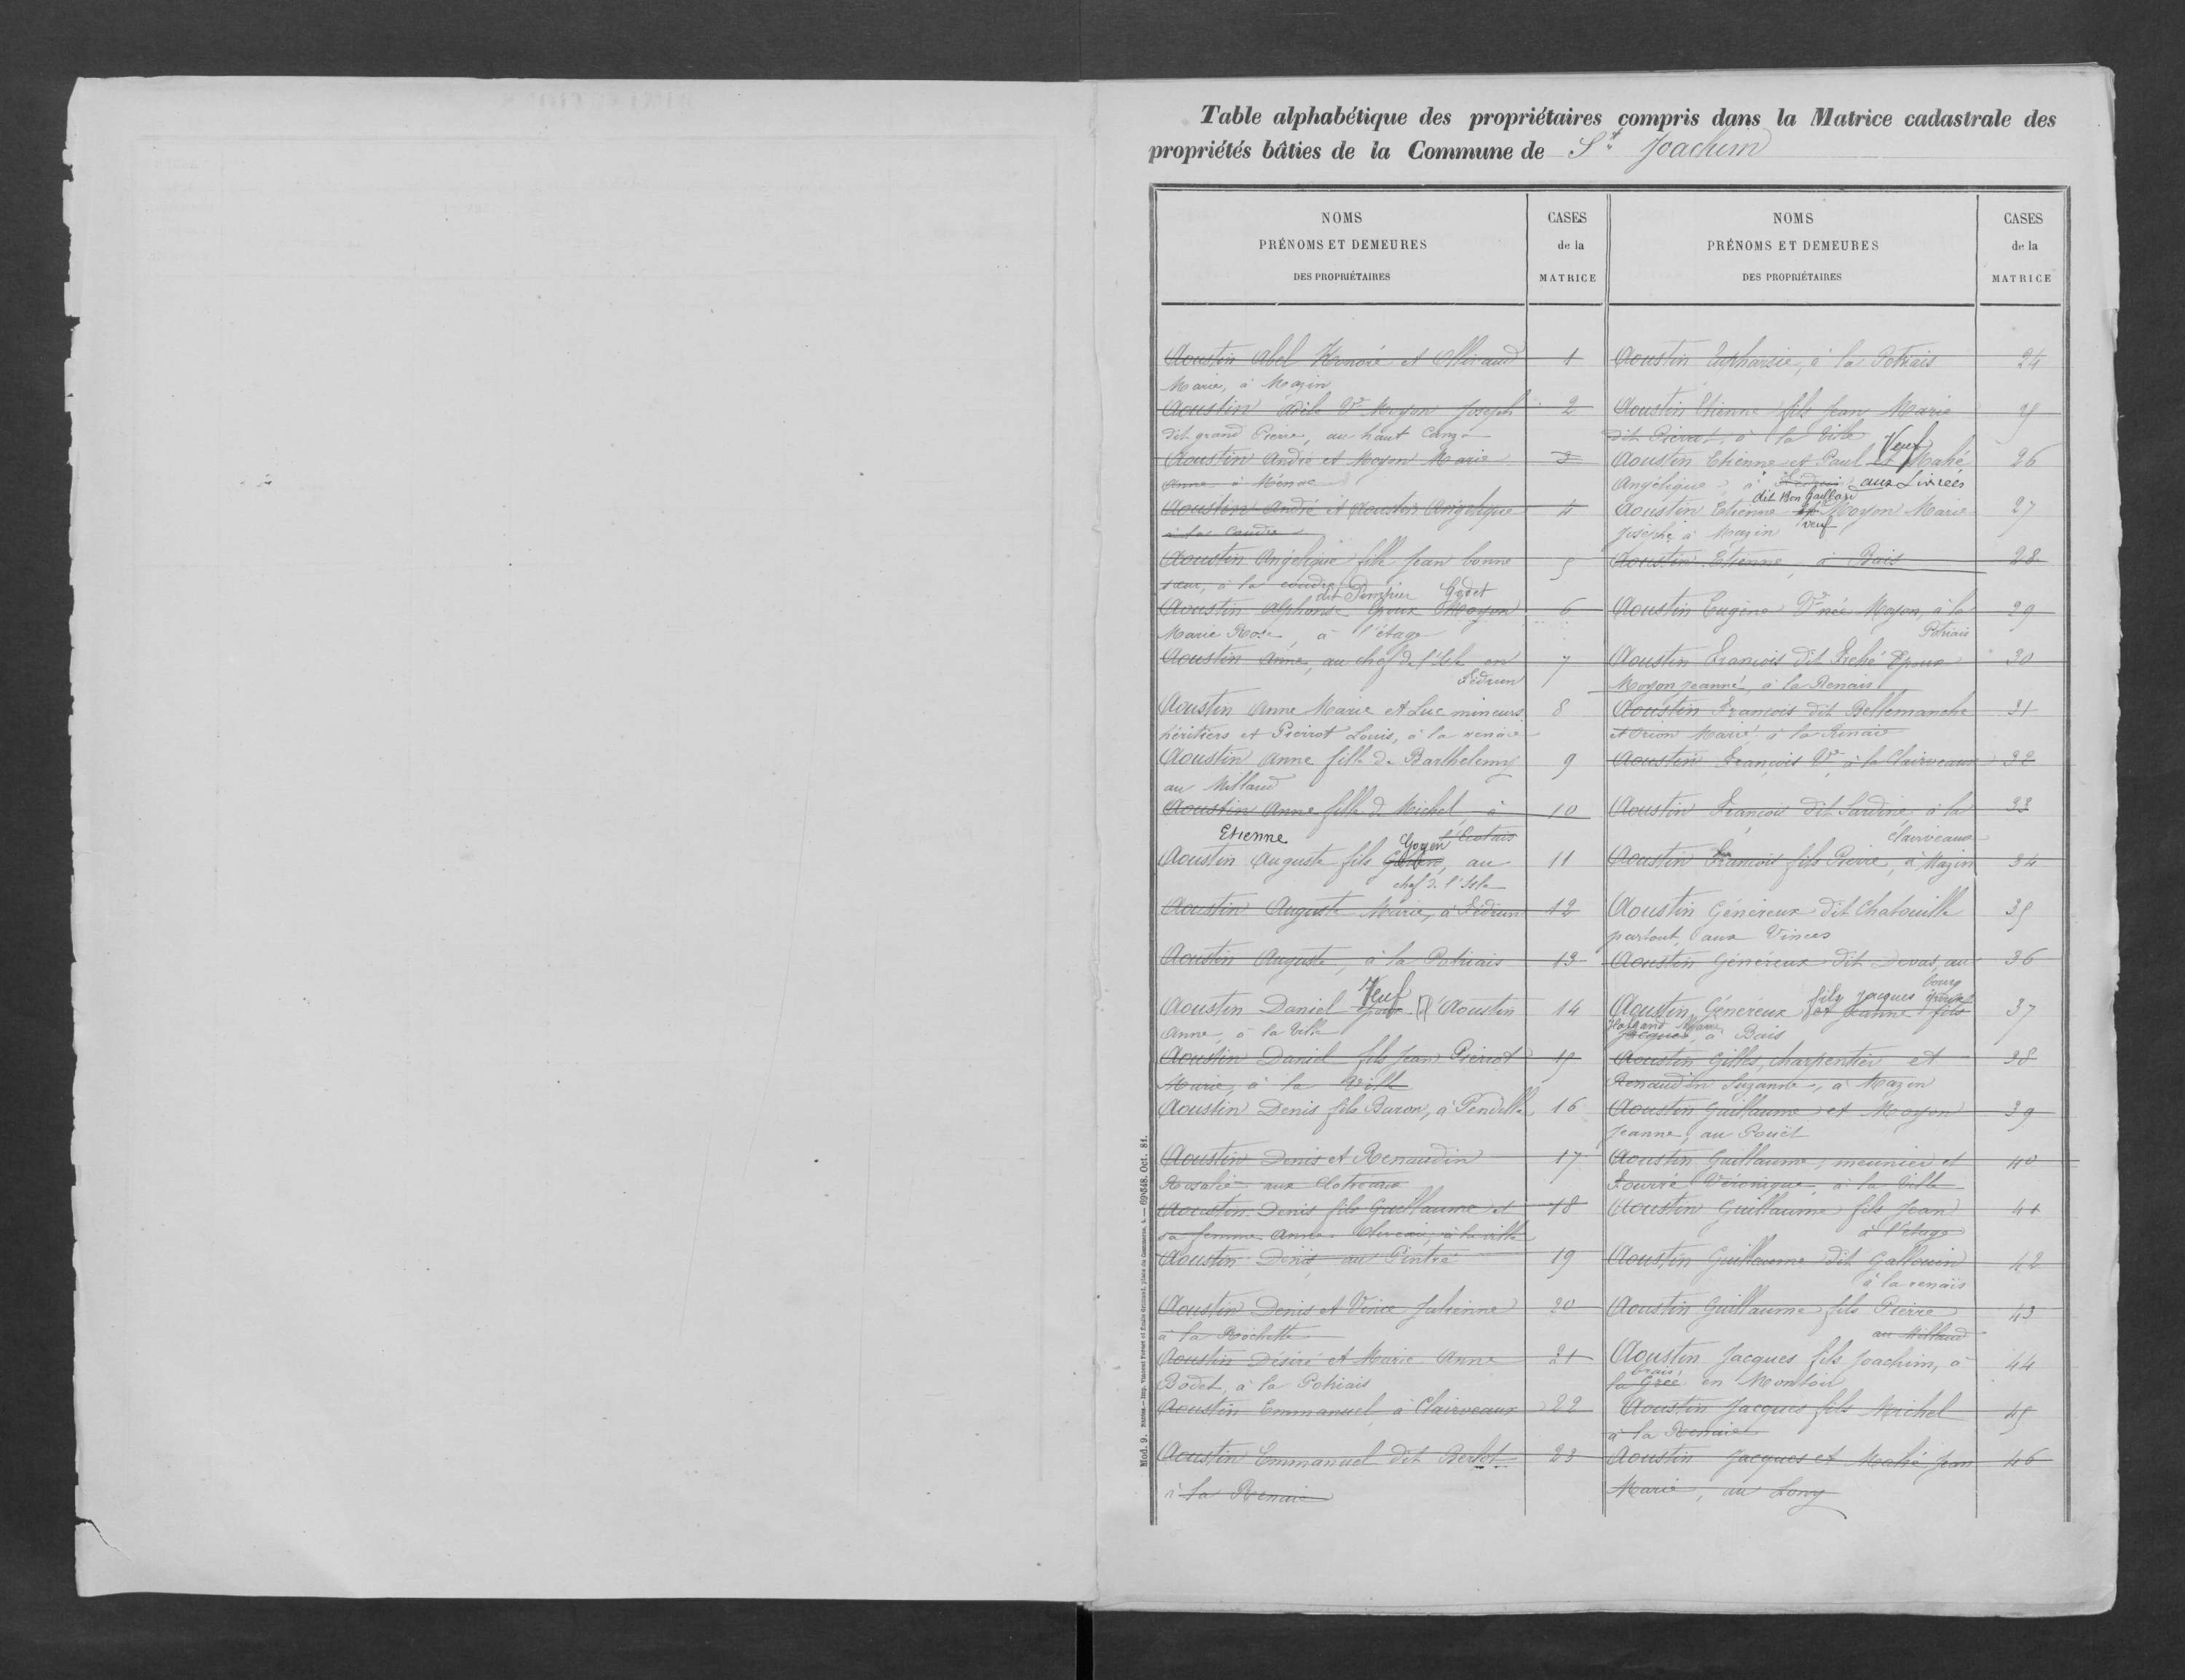 Table alphabétique des propriétaires compris dans la Matrice cadastrale des
propriétés bâties de la Commune de St Joachim
NOMS
PRÉNOMS ET DEMEURES
DES PROPRIÉTAIRES
CASES
de la
MATRICE
Aoustin Abel Honoré et Olliraud 1
Marie, à Mazin
Aoustin Adèle Ve Moyon Joseph 2
dit grand Pierre, au haut
Aoustin André et Moyon Marie 3
Anne à Ménac
Aoustin André et Aoustin Angélique 4
à la Coudre
Aoustin Angélique fille Jean bonne 5
sœur, à la coudre
dit Pompier Godet
Aoustin Alphonse Epoux Moyon 6
Marie Rose, à l'étage
Aoustin Anne, au chef de l'Isle en 7
Fédrun
Aoustin Anne Marie et Luc mineurs 8
héritiers et Pierrot Louis, à la renaie
Aoustin Anne fille de Barthelemy 9
au Millaud
Aoustin Anne fille de Michel, à 10
Etienne Goyen
Aoustin Auguste fils au 11
chef de l'Isle
Aoustin Auguste Marie, à Fédrun 12
Aoustin Auguste, à la Potriais 13
Veuf
Aoustin Daniel Epoux d'Aoustin 14
Anne, à la Ville
Aoustin Daniel fils Jean Pierrot 15
Marie, à la Ville
Aoustin Denis fils Baron, à Pendille 16
Aoustin Denis et Renaudin 17
Rosalie aux
Aoustin Denis fils Guillaume et 18
sa femme Anne à la ville
Aoustin Denis au Pintré 19
Aoustin Denis et Vince Julienne 20
à la Rochette
Aoustin Désiré et Marie Anne 21
Bodet, à la Potriais
Aoustin Emmanuel à Clairveaux 22
Aoustin Emmanuel dit Berlot 23
à la Renaie
NOMS
PRÉNOMS ET DEMEURES
DES PROPRIÉTAIRES
CASES
de la
MATRICE
Aoustin Euphrasie, à la Potriais 24
Aoustin Etienne fils Jean Marie 25
dit Pierrot, à la Ville
Veuf
Aoustin Etienne et Paul et Mahé 26
Angélique, à Fédrun aux Livrées
dit Bon Gaillard
Aoustin Etienne Moyon Marie 27
veuf
Josèphe à Mazin
Aoustin Etienne, à Bais 28
Aoustin Eugène Ve née Moyon, à la 29
Potriais
Aoustin François dit Epoux 30
Moyon Jeanne, à la Renais
Aoustin François dit Bellemanche 31
et Orion Marie à la Renaie
Aoustin François Ve, à la Clairveaux 32
Aoustin François dit Sardine, à la 33
Clairveaux
Aoustin François fils Pierre, à Mazin 34
Aoustin Généreux dit Chatouille 35
partout, aux Vinces
Aoustin Généreux dit Devas, au 36
bourg
fils Jacques époux
Aoustin Généreux et Jeanne fils 37
Halgand Marie
Jacques, à Bais
Aoustin Gilles, charpentier et 38
Renaudin Suzanne, à Mazin
Aoustin Guillaume et Moyon 39
Jeanne, au Pouët
Aoustin Guillaume, meunier et 40
Fourré Véronique, à la Ville
Aoustin Guillaume fils Jean 41
à l'étage
Aoustin Guillaume dit Gallouin 42
à la renais
Aoustin Guillaume fils Pierre 43
au Millaud
Aoustin Jacques fils Joachim, à 44
brais
la Grée en Montoir
Aoustin Jacques fils Michel 45
à la Renaie
Aoustin Jacques et Mahé Jean 46
Marie, au Lony
Mod. 9.
Oct. 81.